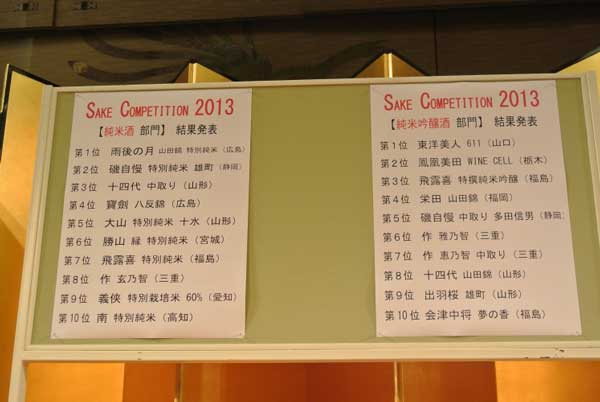 SAKE COMPETITION 2013
【純米酒 部門】 結果発表
第1位 雨後の月 山田錦 特別純米（広島）
第2位 磯自慢 特別純米 雄町（静岡）
第3位 十四代 中取り（山形）
第4位 寶劍 八反錦（広島）
第5位 大山 特別純米 十水（山形）
第6位 勝山 縁 特別純米（宮城）
第7位 飛露喜 特別純米（福島）
第8位 作 玄乃智（三重）
第9位 義侠 特別栽培米 60%（愛知）
第10位 南 特別純米（高知）
SAKE COMPETITION 2013
【純米吟醸酒 部門】 結果発表
第1位 東洋美人 611（山口）
第2位 鳳凰美田 WINE CELL（栃木）
第3位 飛露喜 特撰純米吟醸（福島）
第4位 栄田 山田錦（福岡）
第5位 磯自慢 中取り 多田信男（静岡）
第6位 作 雅乃智（三重）
第7位 作 恵乃智 中取り（三重）
第8位 十四代 山田錦（山形）
第9位 出羽桜 雄町（山形）
第10位 会津中将 夢の香（福島）